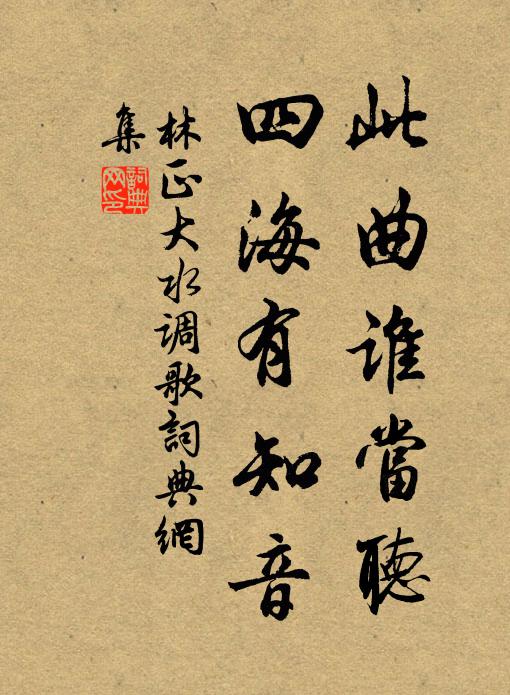 此曲谁當聽
四海有知音
林正大水调歌詞典網
集
詞典
网印